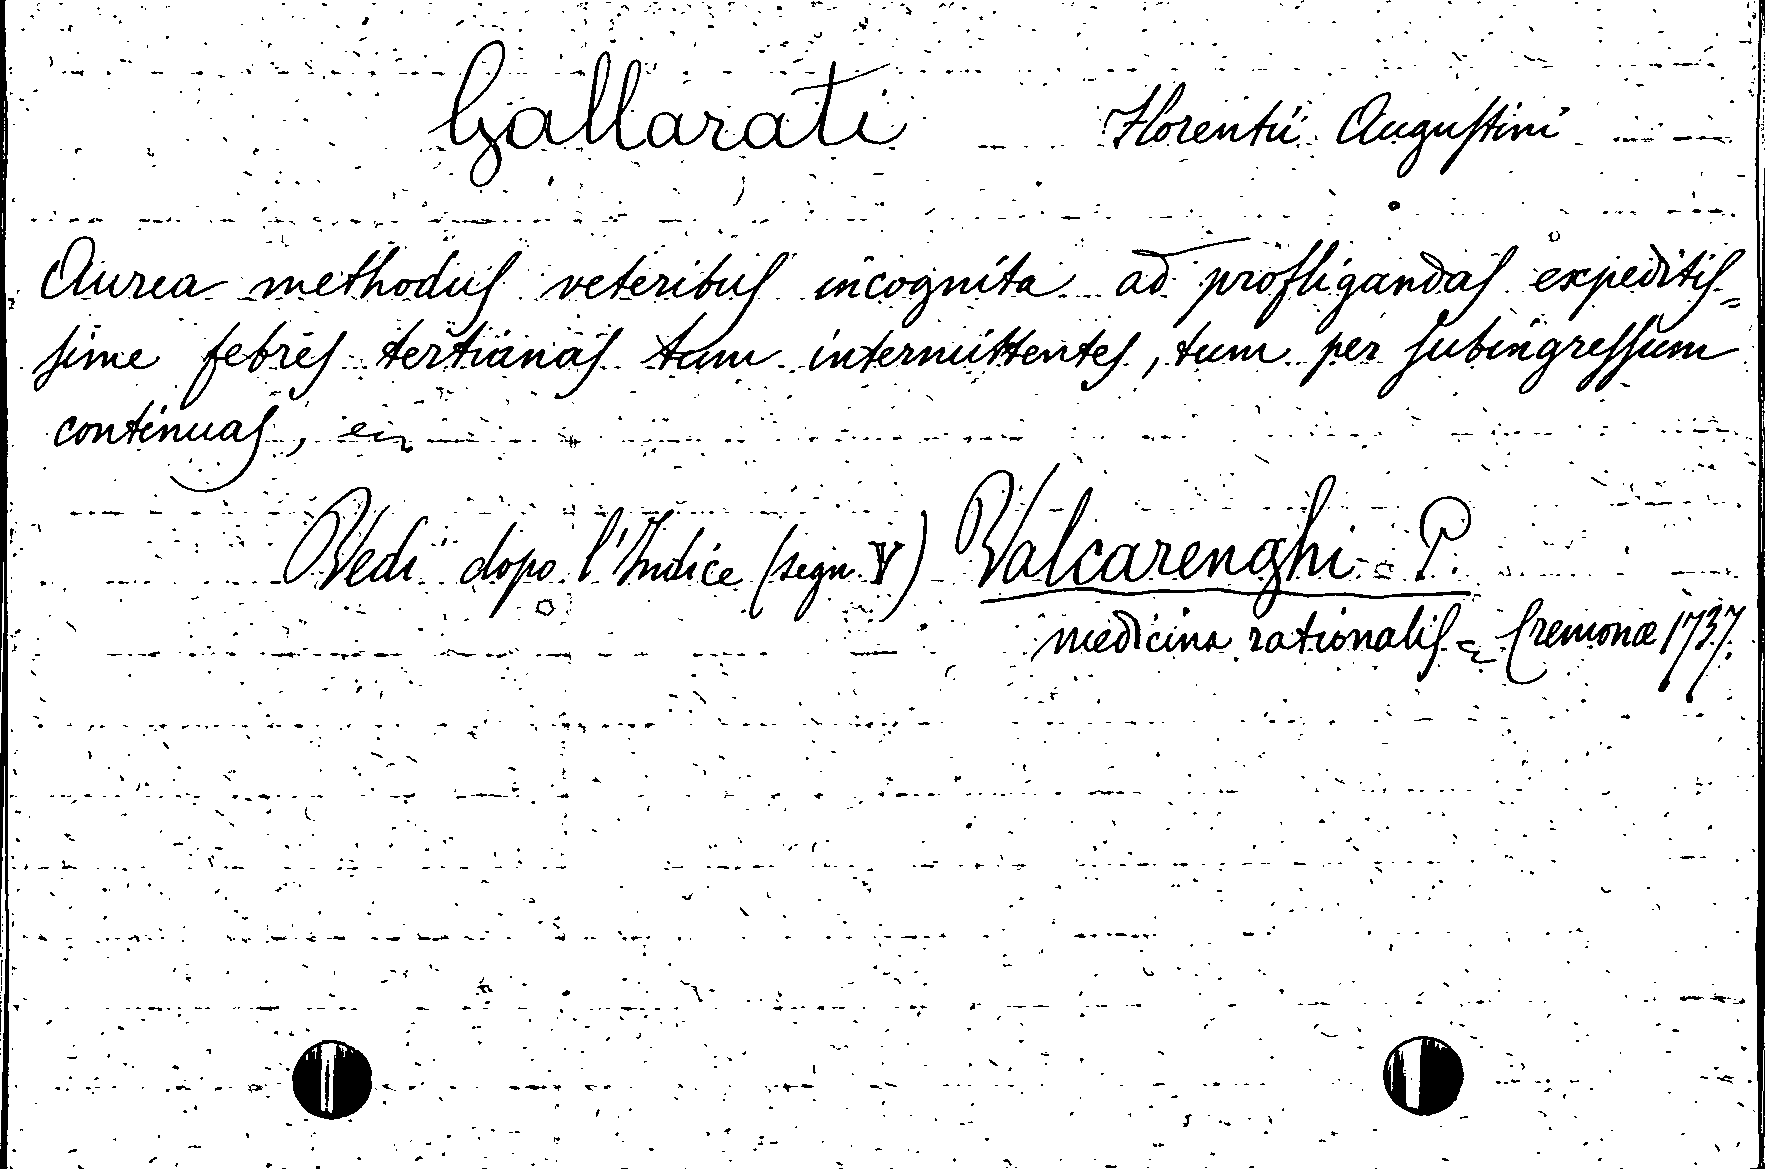 Gallarati Florentii Augustini
Aurea methodus veteribus incognita ad profligandas expeditis=
sime febres tertianas tam intermittentes, tum per subingressum
continuas,
Vedi dopo l'Indice (segn. V) Valcarenghi - P.
medicina rationalis = Cremonæ 1737.